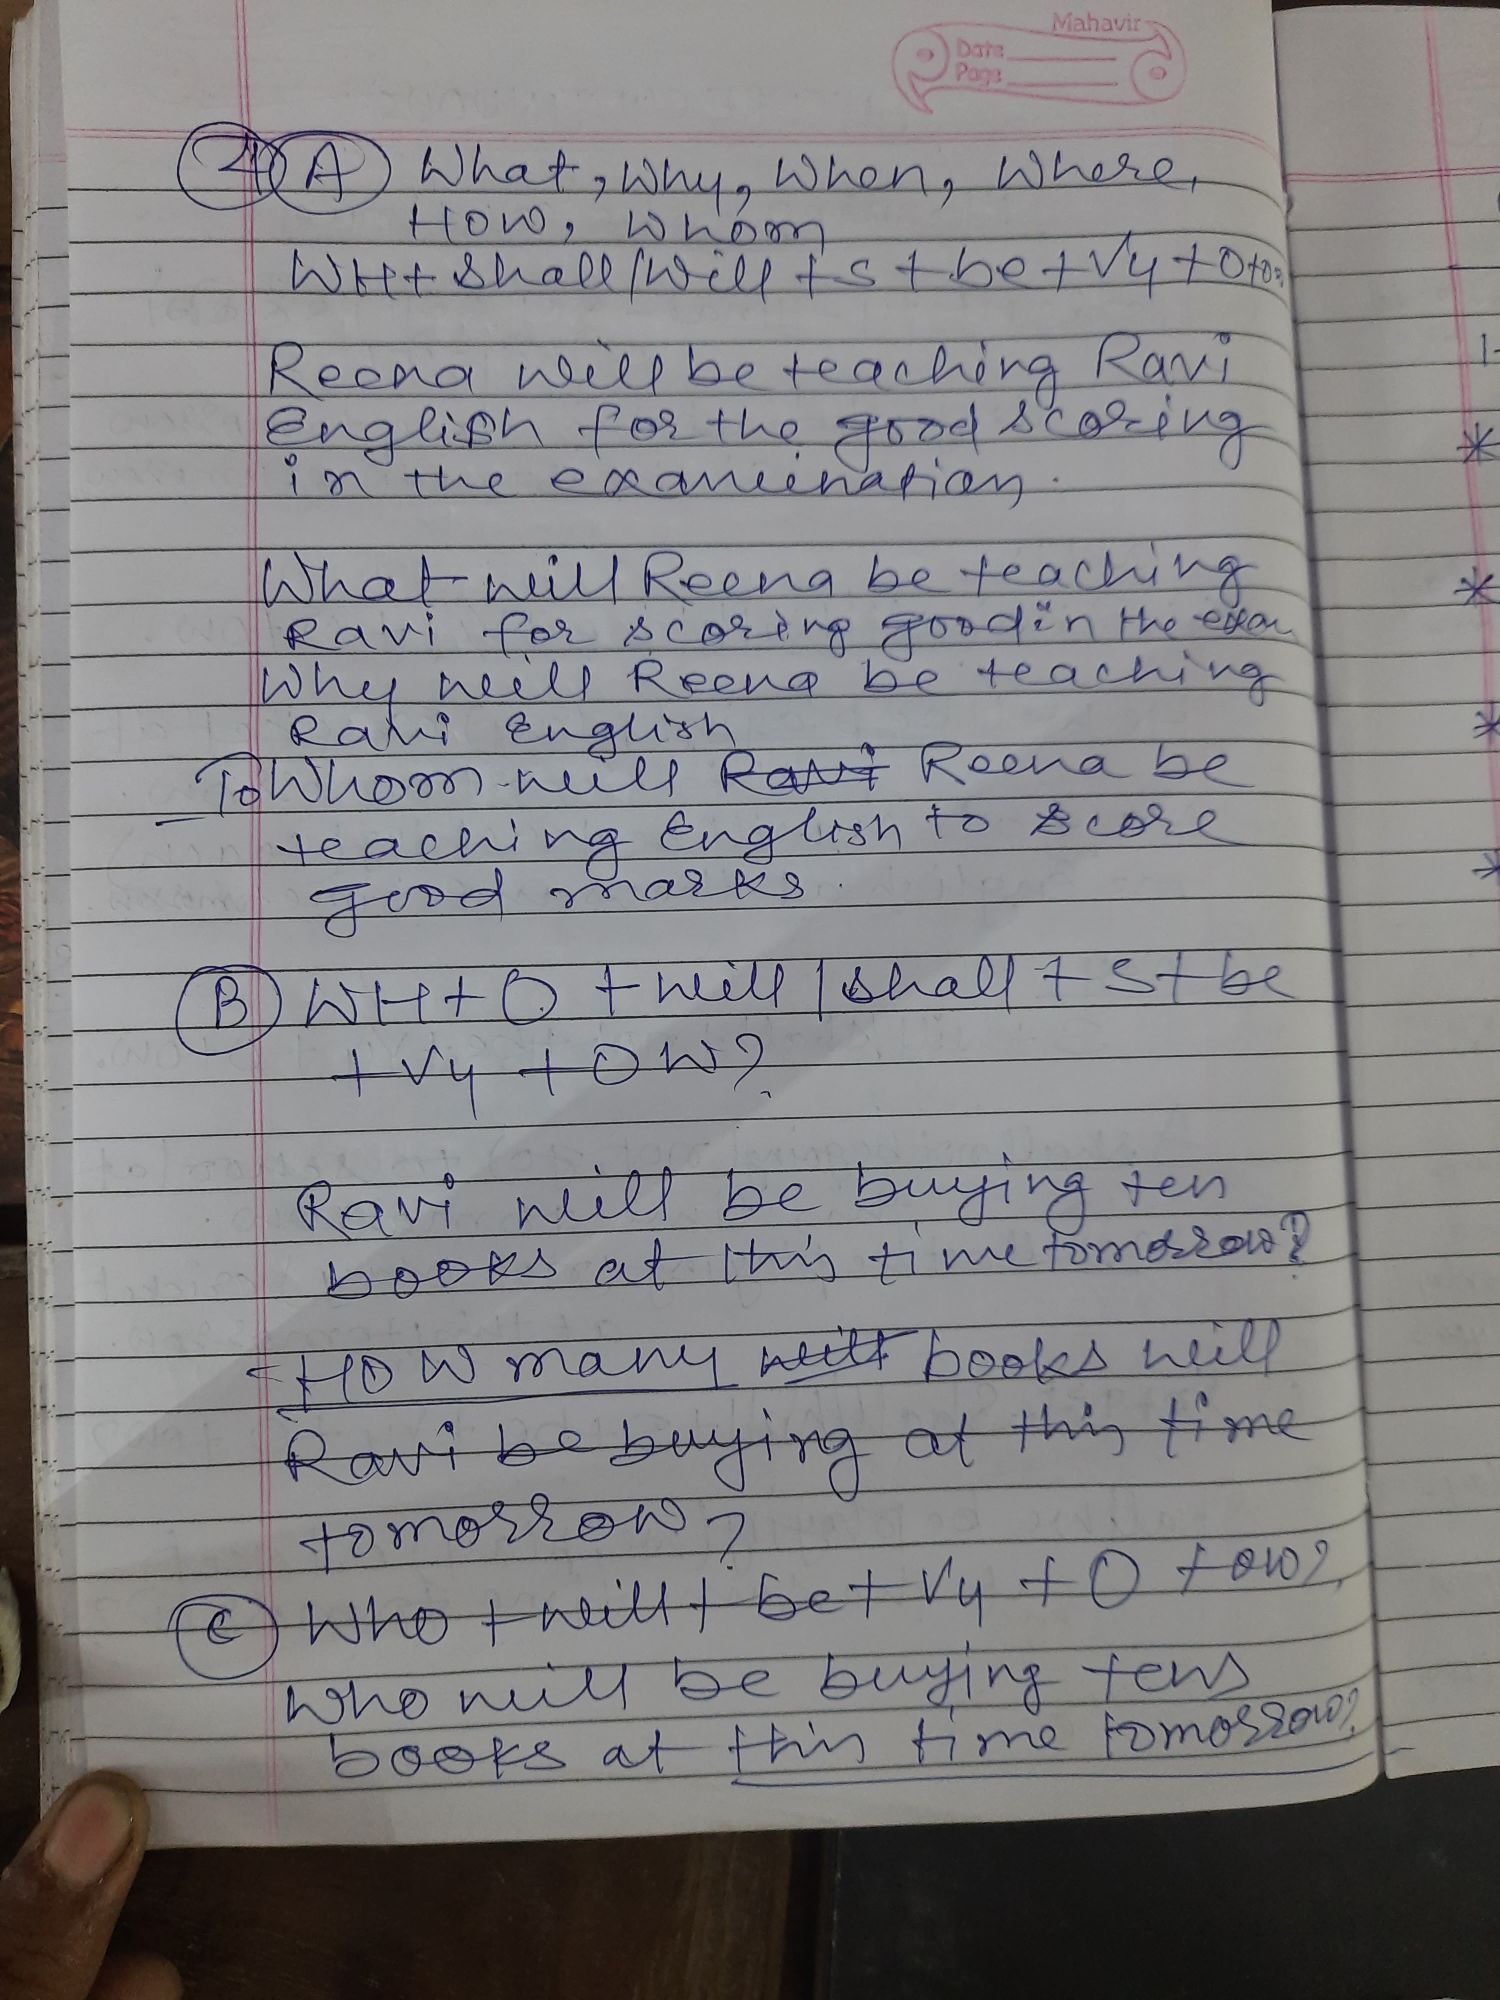 Mahavir
Date
Page
4 A What, Why, When, Where,
How, Whom
WH + Shall/Will + S + be + V4 + O +
Reena will be teaching Ravi
English for the good scoring
in the examination.
What will Reena be teaching
Ravi for scoring good in the exam
Why will Reena be teaching
Ravi English
To Whom will Ravi Reena be
teaching English to score
good marks.
B WH + O + will / shall + S + be
+ V4 + OW?
Ravi will be buying ten
books at this time tomorrow?
How many will books will
Ravi be buying at this time
tomorrow?
C Who + will + be + V4 + O + OW?
Who will be buying tens
books at this time tomorrow?